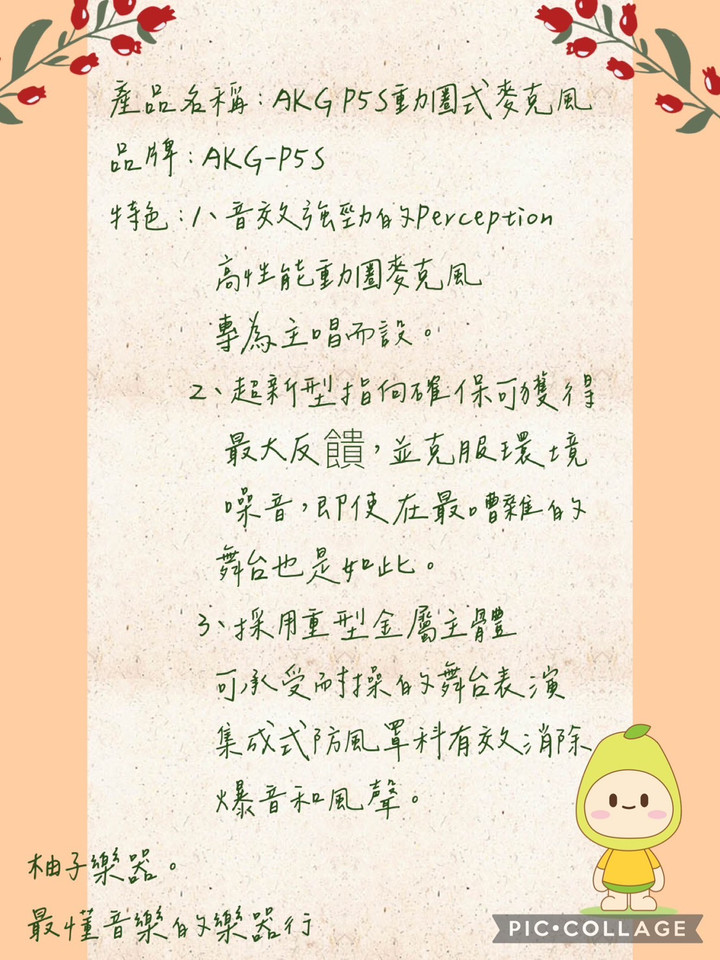 產品名稱：AKG P5S動圈式麥克風
品牌：AKG-P5S
特色：1、音效強勁的Perception
高性能動圈麥克風
專為主唱而設。
2、超新型指向確保可獲得
最大反饋，並克服環境
噪音，即使在最嘈雜的
舞台也是如此。
3、採用重型金屬主體
可承受耐操的舞台表演
集成式防風罩料有效消除
爆音和風聲。
柚子樂器。
最懂音樂的樂器行
PIC•COLLAGE